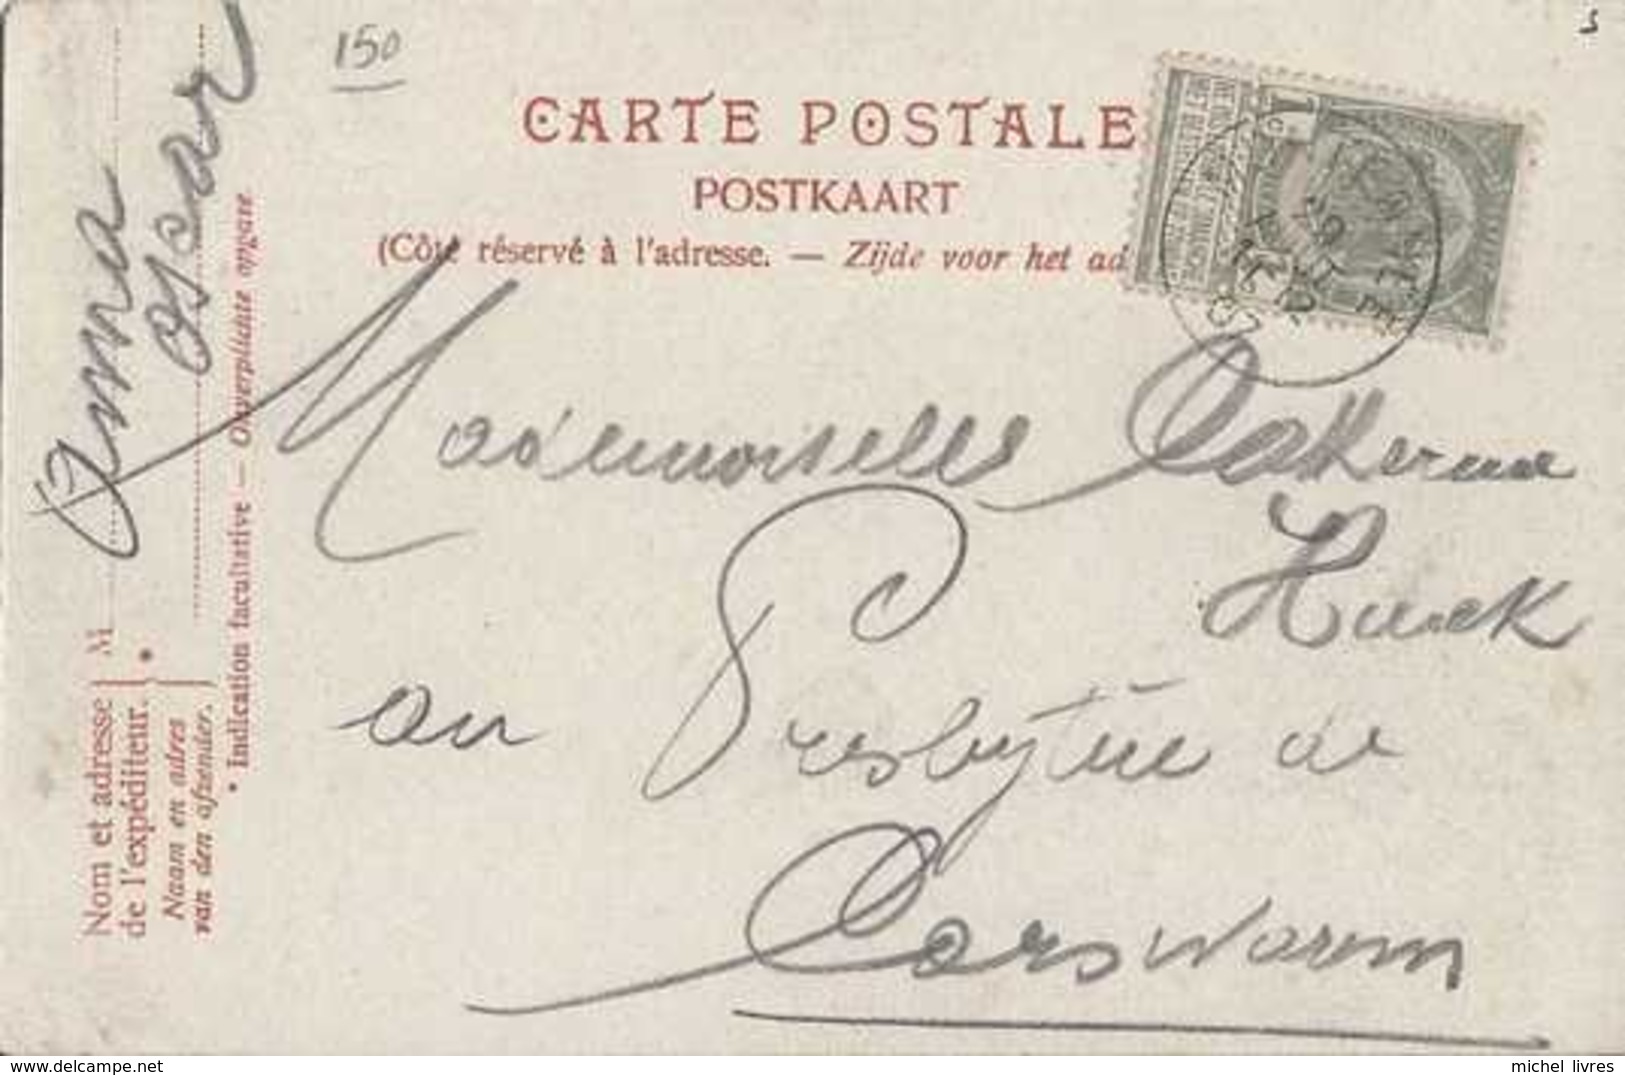 150
CARTE POSTALE
POSTKAART
(Côté réservé à l'adresse. — Zijde voor het ad
Mademoiselle Catherine
Huick
au Presbytère de
Corswarem
Anna
Oscar
Nom et adresse
de l'expéditeur.
M
Naam en adres
van den afzender.
* Indication facultative — Onverplichte opgave
michel livres